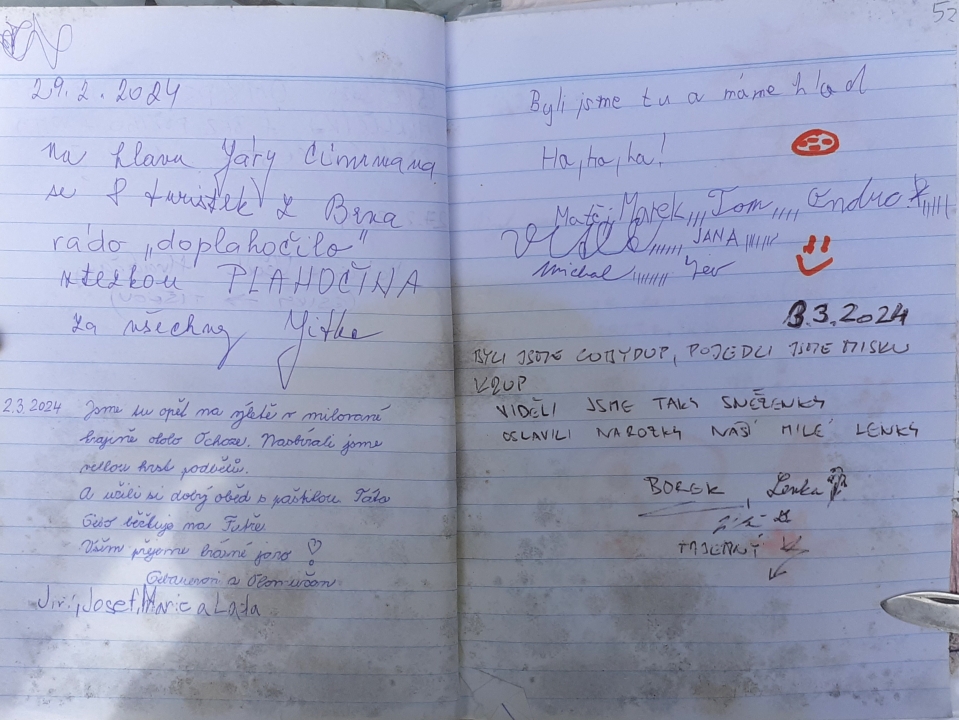 52
29.2.2024
Na hlavu Járy Cimrmana
se 8 turistek z Brna
rádo „doplahočilo"
stezkou PLAHOČINA
za všechny Jitka
2.3.2024 Jsme tu opět na výletě v milované
krajině okolo Ochoze. Nasbírali jsme
velkou hrst podbělů.
A užili si dobrý oběd s paštikou Táta
na
Všem přejeme krásné jaro ♡
a
Jiří, Josef, Marie a Laďa
Byli jsme tu a máme hlad
Ha, ha, ha!
Matěj, Marek,,, Tom,,,,
JANA
Michal
3.3.2024
BYLI JSME COBYDUP, POJEDLI JSME MISKU
KŘUP
VIDĚLI JSME TAKY SNĚŽENKY
OSLAVILI NAROZKY NAŠÍ MILÉ LENKY
BOREK, Lenka
Jiří
TAJEMNÝ